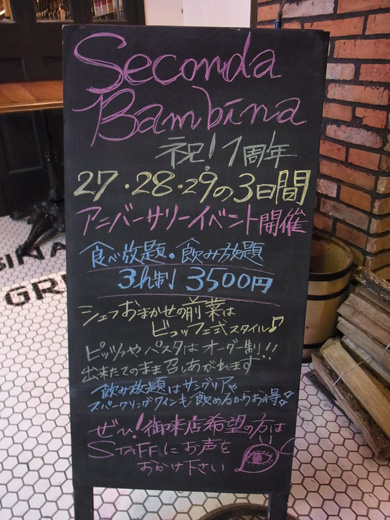 Seconda
Bambina
祝！1周年
27・28・29の3日間
アニバーサリーイベント開催
食べ放題。飲み放題
3h制 3500円
シェフおまかせの前菜は
ビュッフェ式スタイル♪
ピッツァやパスタはオーダー制!!
出来たてのまま召しあがれます
飲み放題はサングリアや
スパークリングワインも飲めるからお得♪
ぜひ！御来店希望の方は
STAFFにお声を
おかけ下さい
BINA
GR